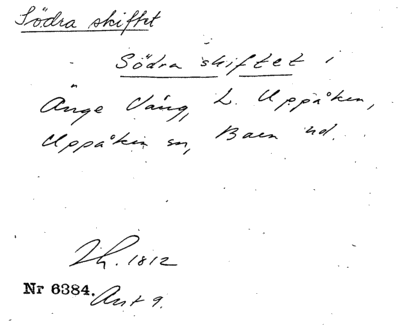 Södra skiftet
Södra skiftet i
Änge Vång, L. Uppåkra,
Uppåkra sn, Bara hd.
1812
Nr 6384. Akt 9.